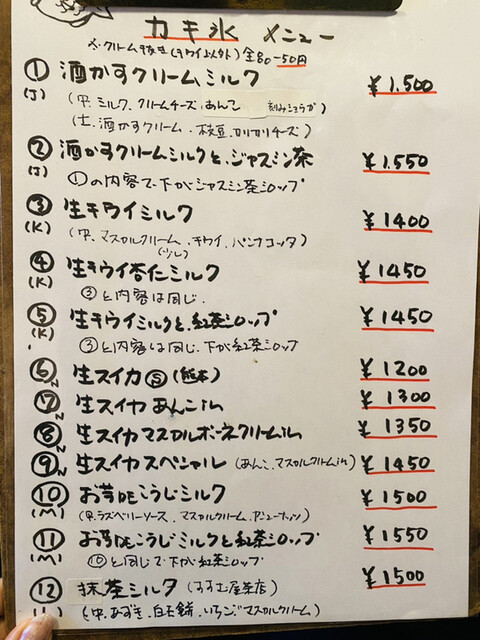 カキ氷 メニュー
※クリームヌキ(キウイ以外)全80-50円
① 酒かすクリームミルク ¥1.500
(J) (中.ミルク.クリームチーズ.あんこ 刻みショウガ)
(土.酒かすクリーム.枝豆.カリカリチーズ)
② 酒かすクリームミルクと、ジャスミン茶 ¥1.550
(J) ①の内容で下がジャスミン茶シロップ
③ 生キウイミルク ¥1400
(K) (中.マスカルクリーム.キウイ.パンナコッタ)
(少し)
④ 生キウイ杏仁ミルク ¥1450
(K) ③と内容は同じ.
⑤ 生キウイミルクと、紅茶シロップ ¥1450
(K) ③と内容は同じ.下が紅茶シロップ
⑥N 生スイカ (熊本) ¥1200
⑦N 生スイカあんこin ¥1300
⑧N 生スイカマスカルポーネクリームin ¥1350
⑨N 生スイカスペシャル(あんこ.マスカルクリームin) ¥1450
⑩ お芋DEこうじミルク ¥1500
(M) (中.ラズベリーソース.マスカルクリーム.)
⑪ お芋DEこうじミルクと紅茶シロップ ¥1550
(M) ⑩と同じで下が紅茶シロップ
⑫ 抹茶ミルク(すすむ屋茶店) ¥1500
(中.あずき.白玉餅.いちご.マスカルクリーム)